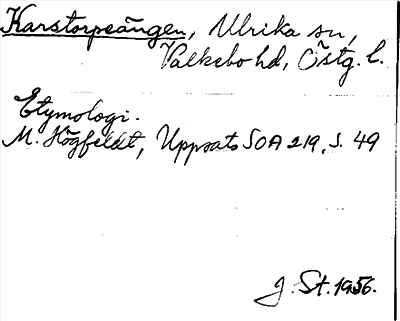 Karstorpeängen, Ulrika sn,
Valkebo hd, Östg. l.
Etymologi.
M. Högfeldt, Uppsats SOA 219, s. 49
J. St. 1956.